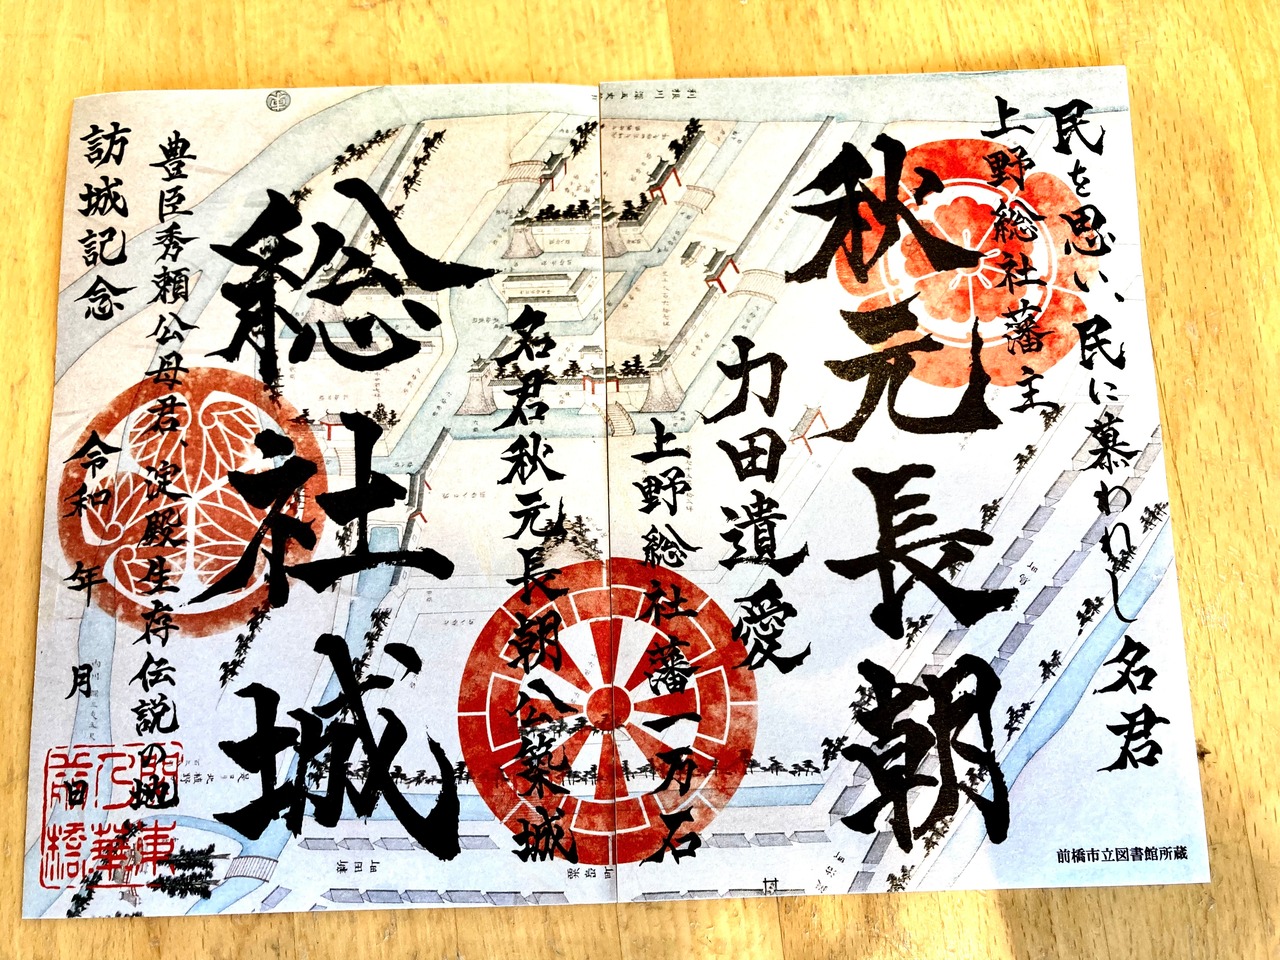 民を思い、民に慕われし名君
上野総社藩主
秋元長朝
力田遺愛
上野総社藩一万石
名君秋元長朝公築城
総社城
豊臣秀頼公母君、淀殿生存伝説の地
訪城記念
令和 年 月 日
関東
乃華
前橋
前橋市立図書館所蔵